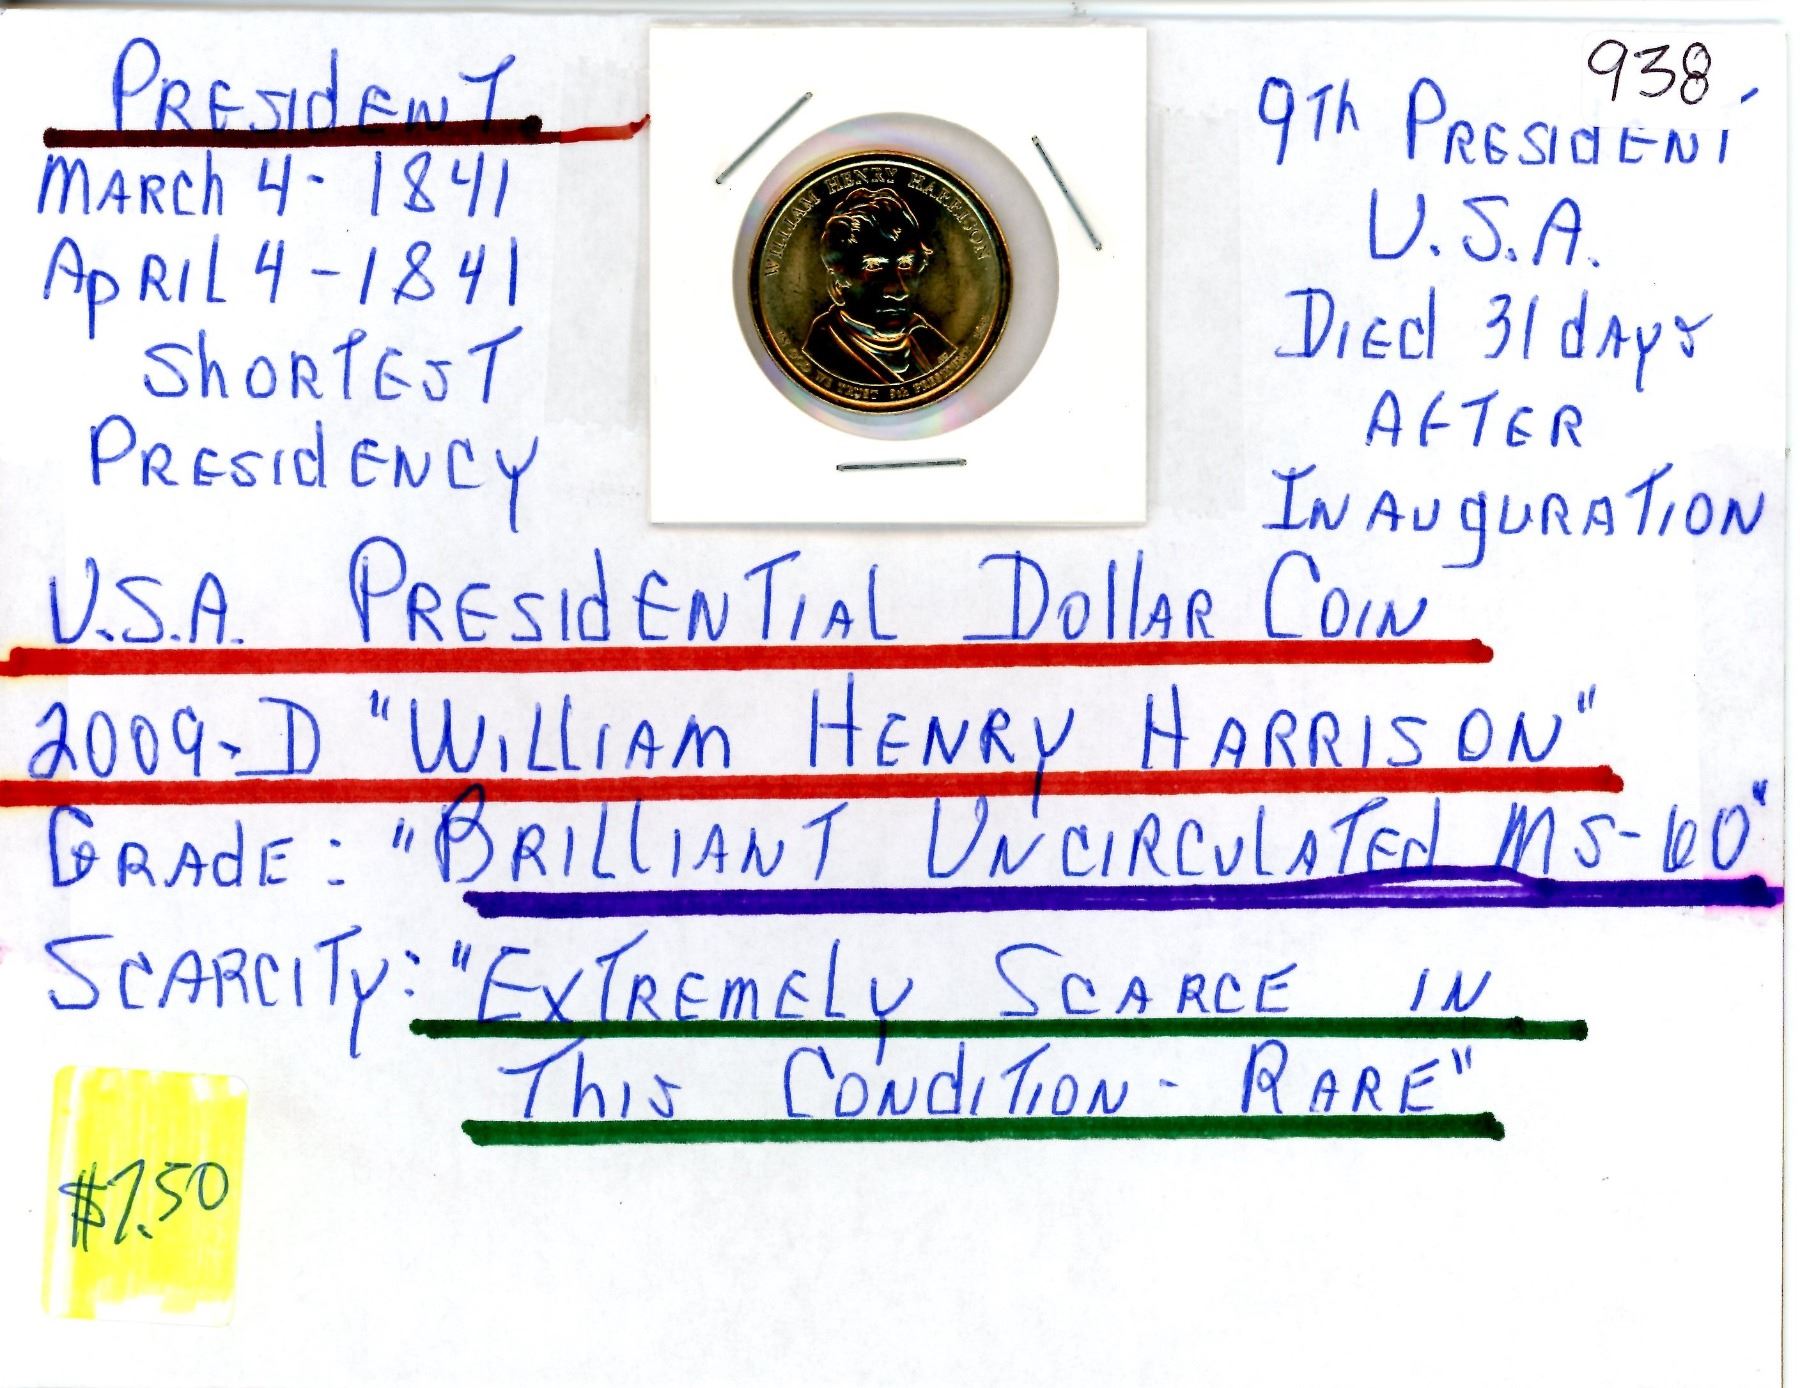 938
PRESIDENT
MARCH 4 - 1841
APRIL 4 - 1841
SHORTEST
PRESIDENCY
WILLIAM HENRY HARRISON
IN GOD WE TRUST 9th PRESIDENT
9Th PRESIDENT
U.S.A.
DIED 31 DAYS
AFTER
INAUGURATION
U.S.A. PRESIDENTIAL DOLLAR COIN
2009-D "WILLIAM HENRY HARRISON"
GRADE: "BRILLIANT UNCIRCULATED MS-60"
SCARCITY: "EXTREMELY SCARCE IN
THIS CONDITION - RARE"
$7.50